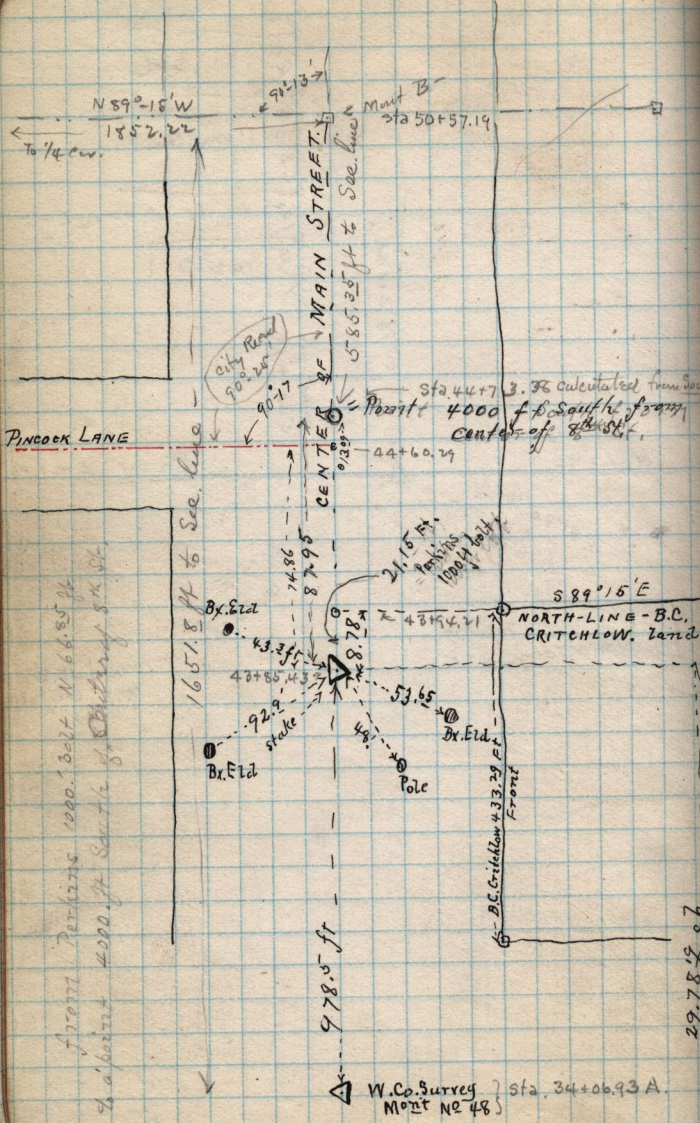 90°-13'
N 89°-15'W
1852.22
To ¼ cor.
Mont B-
Sta 50+57.19
CENTER OF MAIN STREET.
585.35 ft to Sec. line
City Road
90°-25'
90-17
Sta. 44+73.38 calculated from
Point 4000 ft South from
center of 8th St.
PINCOCK LANE
13.09
44+60.29
1651.8 ft to Sec. line
74.86
87.95
21.15 Ft.
Perkins
1000 ft bolt,
S 89°15'E
NORTH-LINE-B.C.
CRITCHLOW. land
43+94.21
8.78
Bx.Eld
43.3 ft
43+85.43
53.65
Bx.Eld
92.9
stake
Bx.Eld
48.
Pole
B.C. Critchlow 433.29 Ft
Front
from Perkins 1000.' Bolt N 66.85 ft
to a point 4000. ft South of Center of 8th St.
978.5 ft
29.78
W.Co. Survey
Mont No 48
Sta. 34+06.93 A.